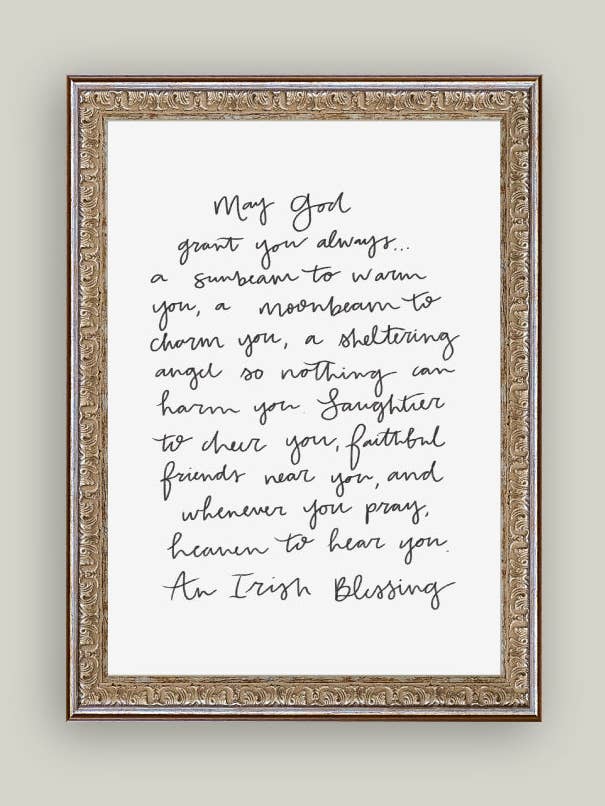 May God
grant you always...
a sunbeam to warm
you, a moonbeam to
charm you, a sheltering
angel so nothing can
harm you. Laughtier
to cheer you, faithful
friends near you, and
whenever you pray,
heaven to hear you.
An Irish Blessing